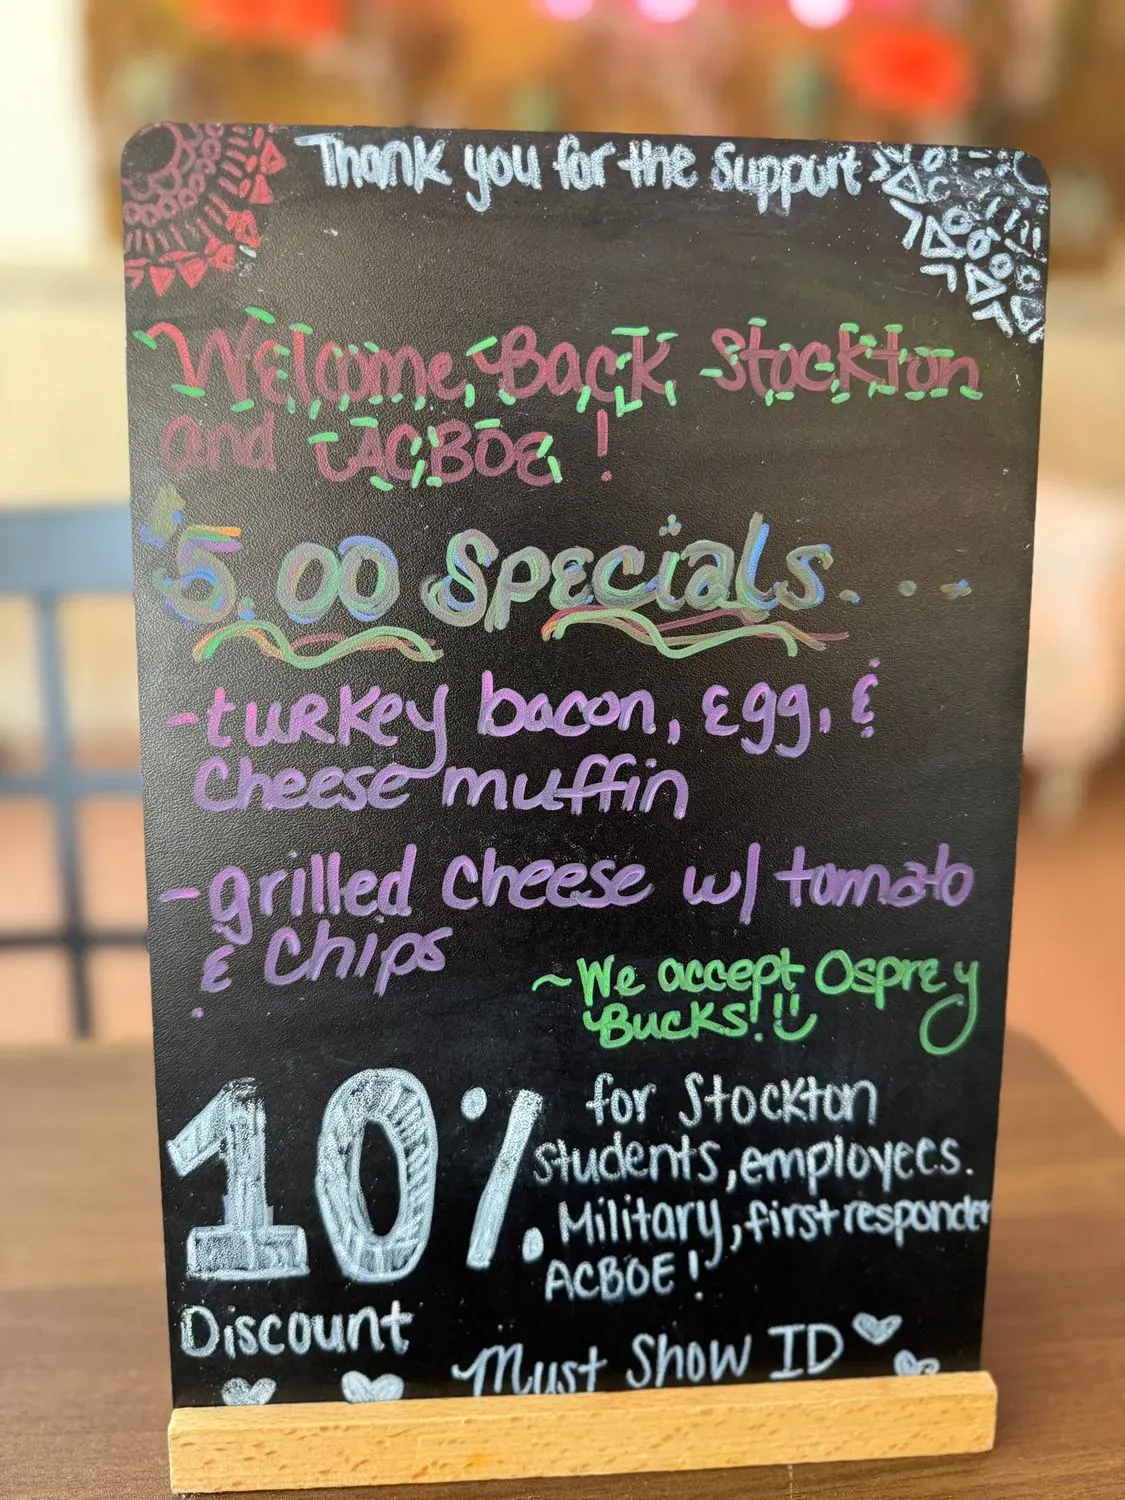 Thank you for the Support
Welcome Back Stockton
and ACBOE!
$5.00 Specials...
-turkey bacon, Egg, &
Cheese muffin
-grilled cheese w/ tomato
& Chips
~We accept Osprey
Bucks!!
10% for Stockton
students, employees.
Military, first responder
ACBOE!
Discount
Must Show ID